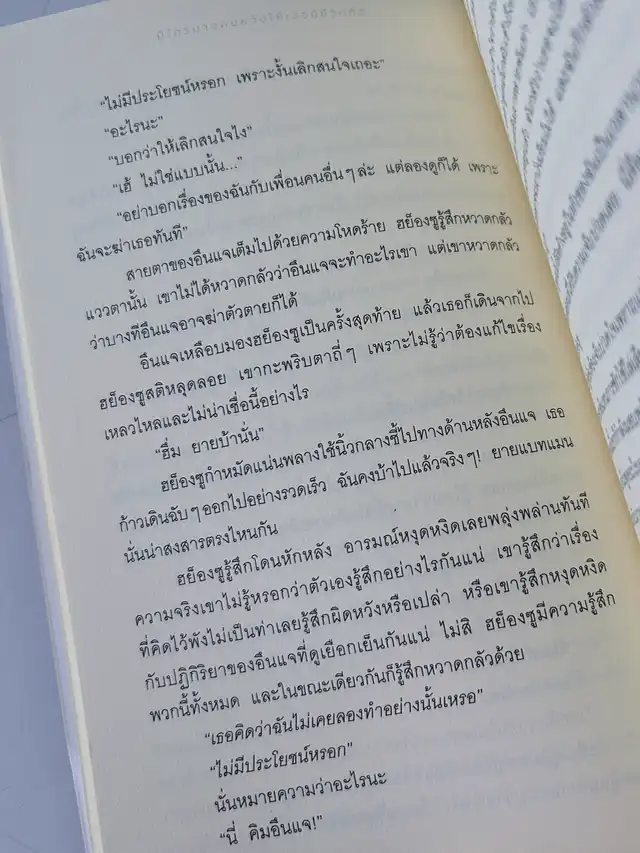 “ไม่มีประโยชน์หรอก เพราะงั้นเลิกสนใจเถอะ”
“อะไรนะ”
“บอกว่าให้เลิกสนใจไง”
“เฮ้ ไม่ใช่แบบนั้น...”
“อย่าบอกเรื่องของฉันกับเพื่อนคนอื่นๆล่ะ แต่ลองดูก็ได้ เพราะ
ฉันจะฆ่าเธอทันที”
สายตาของอึนแจเต็มไปด้วยความโหดร้าย ฮย็องซูรู้สึกหวาดกลัว
แววตานั้น เขาไม่ได้หวาดกลัวว่าอึนแจจะทำอะไรเขา แต่เขาหวาดกลัว
ว่าบางทีอึนแจอาจฆ่าตัวตายก็ได้
อึนแจเหลือบมองฮย็องซูเป็นครั้งสุดท้าย แล้วเธอก็เดินจากไป
ฮย็องซูสติหลุดลอย เขากะพริบตาถี่ๆ เพราะไม่รู้ว่าต้องแก้ไขเรื่อง
เหลวไหลและไม่น่าเชื่อนี้อย่างไร
“ฮึ่ม ยายบ้านั่น”
ฮย็องซูกำหมัดแน่นพลางใช้นิ้วกลางชี้ไปทางด้านหลังอึนแจ เธอ
ก้าวเดินฉับๆออกไปอย่างรวดเร็ว ฉันคงบ้าไปแล้วจริงๆ! ยายแบทแมน
นั่นน่าสงสารตรงไหนกัน
ฮย็องซูรู้สึกโดนหักหลัง อารมณ์หงุดหงิดเลยพลุ่งพล่านทันที
ความจริงเขาไม่รู้หรอกว่าตัวเองรู้สึกอย่างไรกันแน่ เขารู้สึกว่าเรื่อง
ที่คิดไว้พังไม่เป็นท่าเลยรู้สึกผิดหวังหรือเปล่า หรือเขารู้สึกหงุดหงิด
กับปฏิกิริยาของอึนแจที่ดูเยือกเย็นกันแน่ ไม่สิ ฮย็องซูมีความรู้สึก
พวกนี้ทั้งหมด และในขณะเดียวกันก็รู้สึกหวาดกลัวด้วย
“เธอคิดว่าฉันไม่เคยลองทำอย่างนั้นเหรอ”
“ไม่มีประโยชน์หรอก”
นั่นหมายความว่าอะไรนะ
“นี่ คิมอึนแจ!”